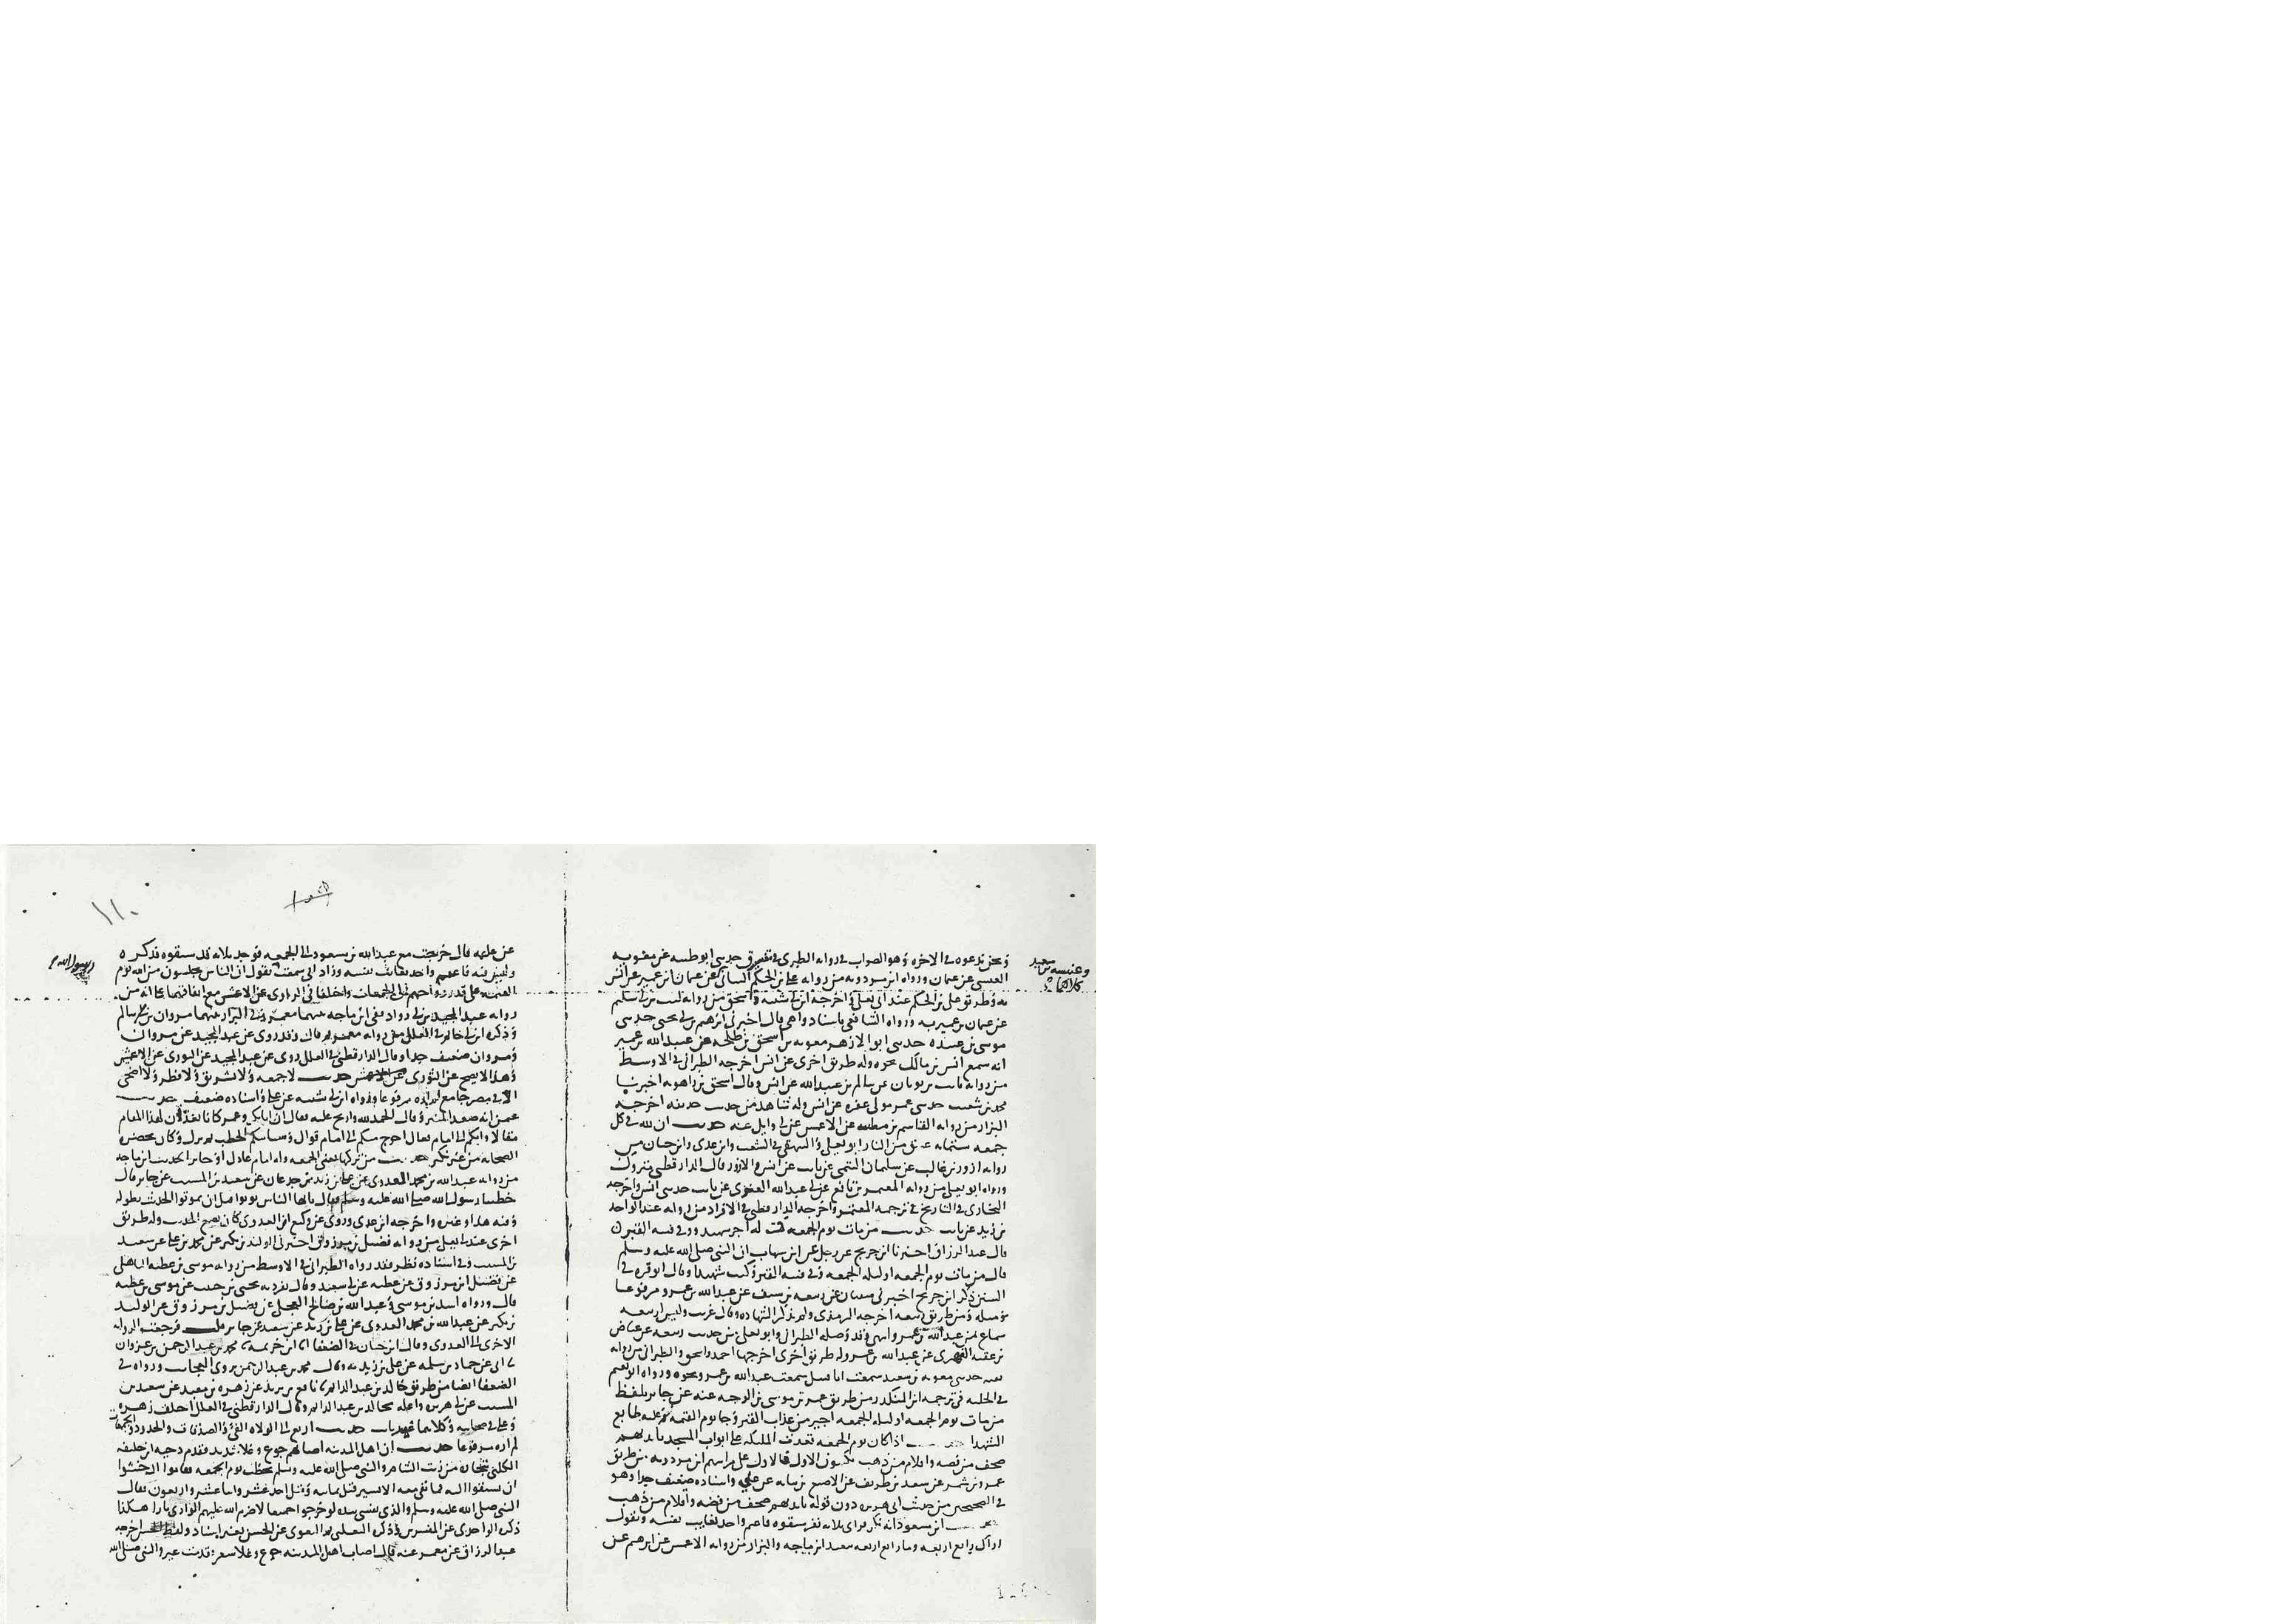 ونحن ندعوه في الاخره وهو الصواب في روايه الطبري في طريق حدثني ابو طيبه عن معويه
العبسي عن عثمان ورواه ابن مردويه من روايه علي بن الحكم البناني عن عثمان بن عمير عن انس
به وطريق علي بن الحكم عند ابي يعلى واخرجه ابن ابي شيبه واسحق من روايه ليث بن ابي سليم
عن عثمان بن عمير به ورواه الشافعي باسناد واهي قال اخبرني ابرهيم بن ابي يحيى حدثني
موسى بن عبيده حدثني ابو الازهر معويه بن اسحق بن طلحه عن عبيد الله بن عمير
انه سمع انس بن مالك نحوه وله طريق اخرى عن انس اخرجه الطبراني في الاوسط
من روايه ثابت بن ثوبان عن سالم بن عبد الله عن انس وقال اسحق بن راهويه اخبرنا
محمد بن شعيب حدثني عمر مولى عفره عن انس وله شاهد من حديث حذيفه اخرجه
البزار من روايه القاسم بن مطيب عن الاعمش عن ابي وايل عنه حديث ان لله في كل
جمعه ستمائه عتيق من النار ابو يعلى والبيهقي في الشعب وابن عدي وابن حبان من
روايه ازور بن غالب عن سليمان التيمي عن ثابت عن انس والازور قال الدارقطني متروك
ورواه ابو يعلى من روايه المعتمر بن نافع عن ابي عبد الله العنزي عن ثابت حدثني انس واخرجه
البخاري في التاريخ في ترجمه المعتمر واخرجه الدارقطني في الافراد من روايه عبد الواحد
بن زيد عن ثابت حديث من مات يوم الجمعه كتب له اجر شهيد ووقي فتنه القبر
قال عبد الرزاق اخبرنا ابن جريج عن رجل عن ابن شهاب ان النبي صلى الله عليه وسلم
قال من مات يوم الجمعه او ليله الجمعه وقي فتنه القبر وكتب شهيدا وقال ابو قره في
السنن ذكر ابن جريج اخبرني سفيان عن ربيعه بن سيف عن عبد الله بن عمرو مرفوعا
مثله ومن طريق ربيعه اخرجه الترمذي ولم يذكر الشهاده وقال غريب وليس لربيعه
سماع من عبد الله بن عمرو انتهى وقد وصله الطبراني وابو يعلى من حديث ربيعه عن عياض
بن عقبه الفهري عن عبد الله بن عمرو وله طريق اخرى اخرجها احمد واسحق والطبراني من روايه
بقيه حدثني معويه بن سعيد سمعت ابا قبيل سمعت عبد الله بن عمرو نحوه ورواه ابو نعيم
في الحليه في ترجمه ابن المنكدر من طريق عمر بن موسى بن الوجيه عنه عن جابر بلفظ
من مات يوم الجمعه او ليله الجمعه اجير من عذاب القبر وجا يوم القيمه وعليه طابع
الشهدا حديث اذا كان يوم الجمعه قعدت المليكه على ابواب المسجد بايديهم
صحف من فضه واقلام من ذهب يكتبون الاول فالاول على مراتبهم ابن مردويه من طريق
عمرو بن شمر عن سعد بن طريف عن الاصبغ بن نباته عن علي واسناده ضعيف جدا وهو
في الصحيحين من حديث ابي هريره دون قوله بايديهم صحف من فضه واقلام من ذهب
حديث ابن مسعود انه بكر فراى ثلاثه نفر سبقوه فاغتم واخذ يعاتب نفسه ويقول
اراك رابع اربعه وما رابع اربعه بسعيد ابن ماجه والبزار من روايه الاعمش عن ابرهيم عن
وعنبسه بن سعيد
كلاهما
١١٠
عن علقمه قال خرجت مع عبد الله بن مسعود الى الجمعه فوجد ثلاثه قد سبقوه فذكره
وليس فيه فاغتم واخذ يعاتب نفسه وزاد اني سمعت يقول ان الناس يجلسون من الله يوم
القيمه على قدر رواحهم الى الجمعات واختلفا في الراوي عن الاعمش مع اتفاقهما على انه من
روايه عبد المجيد بن ابي رواد ففي ابن ماجه بينهما معمر وفي البزار بينهما مروان بن سالم
وذكره ابن ابي حاتم في العلل من روايه معمر قال وقد روي عن عبد المجيد عن مروان
ومروان ضعيف جدا وقال الدارقطني في العلل روي عن عبد المجيد عن الثوري عن الاعمش
وهذا لا يصح عن الثوري حديث لا جمعه ولا تشريق ولا فطر ولا اضحى
الا في مصر جامع لم اره مرفوعا ورواه ابن ابي شيبه عن علي واسناده ضعيف حديث
عثمن انه صعد المنبر وقال الحمد لله وارتج عليه فقال ان ابا بكر وعمر كانا يعدان لهذا المقام
مقالا وانكم الى امام فعال احوج منكم الى امام قوال وستاتيكم الخطب ثم نزل وكان بمحضر
الصحابه من غير نكير حديث من تركها يعني الجمعه وله امام عادل او جائر الحديث ابن ماجه
من روايه عبد الله بن محمد العدوي عن علي بن زيد بن جدعان عن سعيد بن المسيب عن جابر قال
خطبنا رسول الله صلى الله عليه وسلم فقال يايها الناس توبوا قبل ان تموتوا الحديث بطوله
وفيه هذا وغيره واخرجه ابن عدي وروى عن وكيع ان العدوي كان يضع الحديث وله طريق
اخرى عند ابي يعلى من روايه فضيل بن مرزوق اخبرني الوليد بن بكير عن محمد بن علي عن سعيد
بن المسيب وفي اسناده نظر وقد رواه الطبراني في الاوسط من روايه موسى بن عطيه الباهلي
عن فضيل بن مرزوق عن عطيه عن ابي سعيد وقال تفرد به يحيى بن حبيب عن موسى بن عطيه
قال ورواه اسد بن موسى وعبد الله بن صالح العجلي عن فضيل بن مرزوق عن الوليد
بن بكير عن عبد الله بن محمد العدوي عن علي بن زيد عن سعيد عن جابر قلت فرجعت الروايه
الاخرى الى العدوي وقال ابن حبان في الضعفا ثنا ابن خزيمه ثنا محمد بن عبد الرحمن بن غزوان
عن حماد بن سلمه عن علي بن زيد به وقال محمد بن عبد الرحمن يروي العجائب ورواه في
الضعفا ايضا من طريق خالد بن عبد الدايم ثنا نافع بن يزيد عن زهره بن معبد عن سعيد بن
المسيب عن ابي هريره واعله بخالد بن عبد الدايم وقال الدارقطني في العلل اختلف زهره
وعلي في صحابيه وكلاهما غير ثابت حديث اربع الى الولاه الفي والصدقات والحدود والجمعات
لم اره مرفوعا حديث ان اهل المدينه اصابهم جوع وغلا شديد فقدم دحيه بن خليفه
الكلبي بتجاره من زيت الشام والنبي صلى الله عليه وسلم يخطب يوم الجمعه فقاموا اليه خشوا
ان يسبقوا اليه فما بقي معه الا يسير قيل ثمانيه وقيل احد عشر واثنا عشر واربعون فقال
النبي صلى الله عليه وسلم والذي نفسي بيده لو خرجوا جميعا لاضرم الله عليهم الوادي نارا هكذا
ذكره الواحدي عن المفسرين وذكره الثعلبي ثم البغوي عن الحسن بغير اسناد اخرجه
عبد الرزاق عن معمر عنه قال اصاب اهل المدينه جوع وغلا سعر فقدمت عير والنبي صلى الله
رسول الله